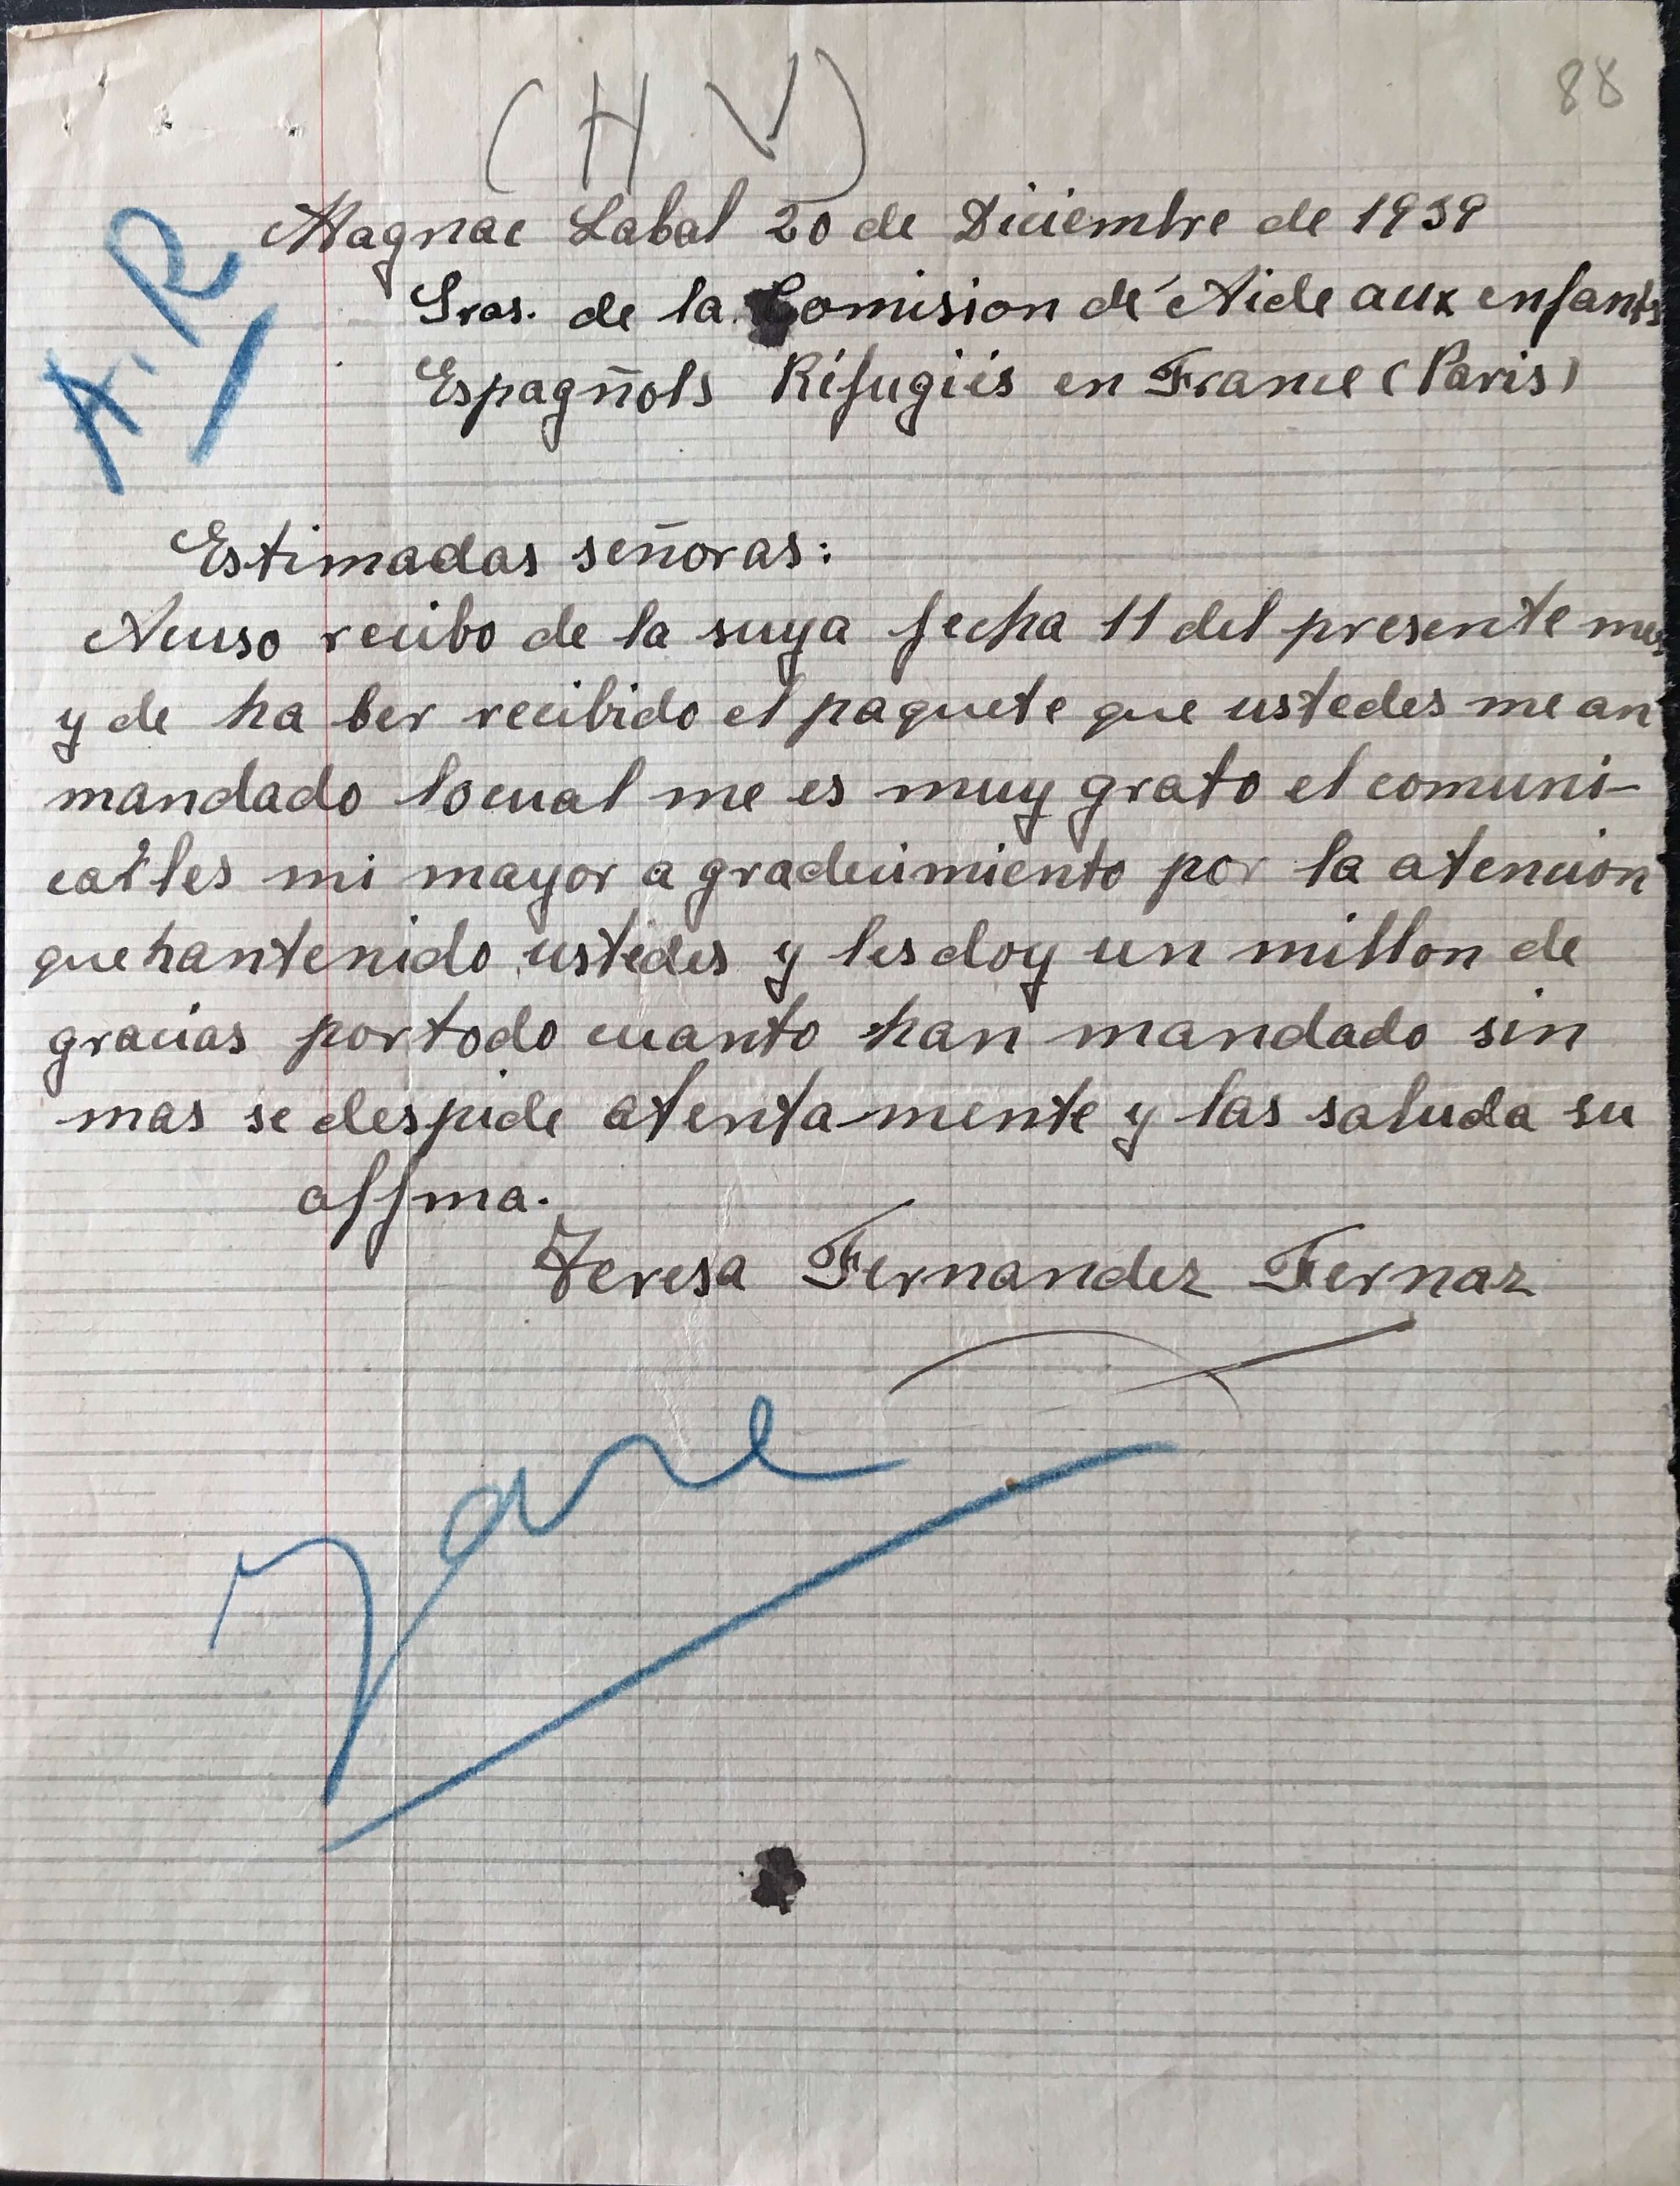 (H V)
88
A. R
Magnac Labal 20 de Diciembre de 1939
Sras. de la Comision de Aide aux enfants
Espagñols Réfugiés en France (Paris)
Estimadas señoras:
Acuso recibo de la suya fecha 11 del presente mes
y de ha ber recibido el paquete que ustedes me an
mandado lo cual me es muy grato el comuni-
carles mi mayor a gradecimiento por la atencion
que han tenido ustedes y les doy un millon de
gracias por todo cuanto han mandado sin
mas se despide atentamente y las saluda su
affma.
Teresa Fernandez Fernaz